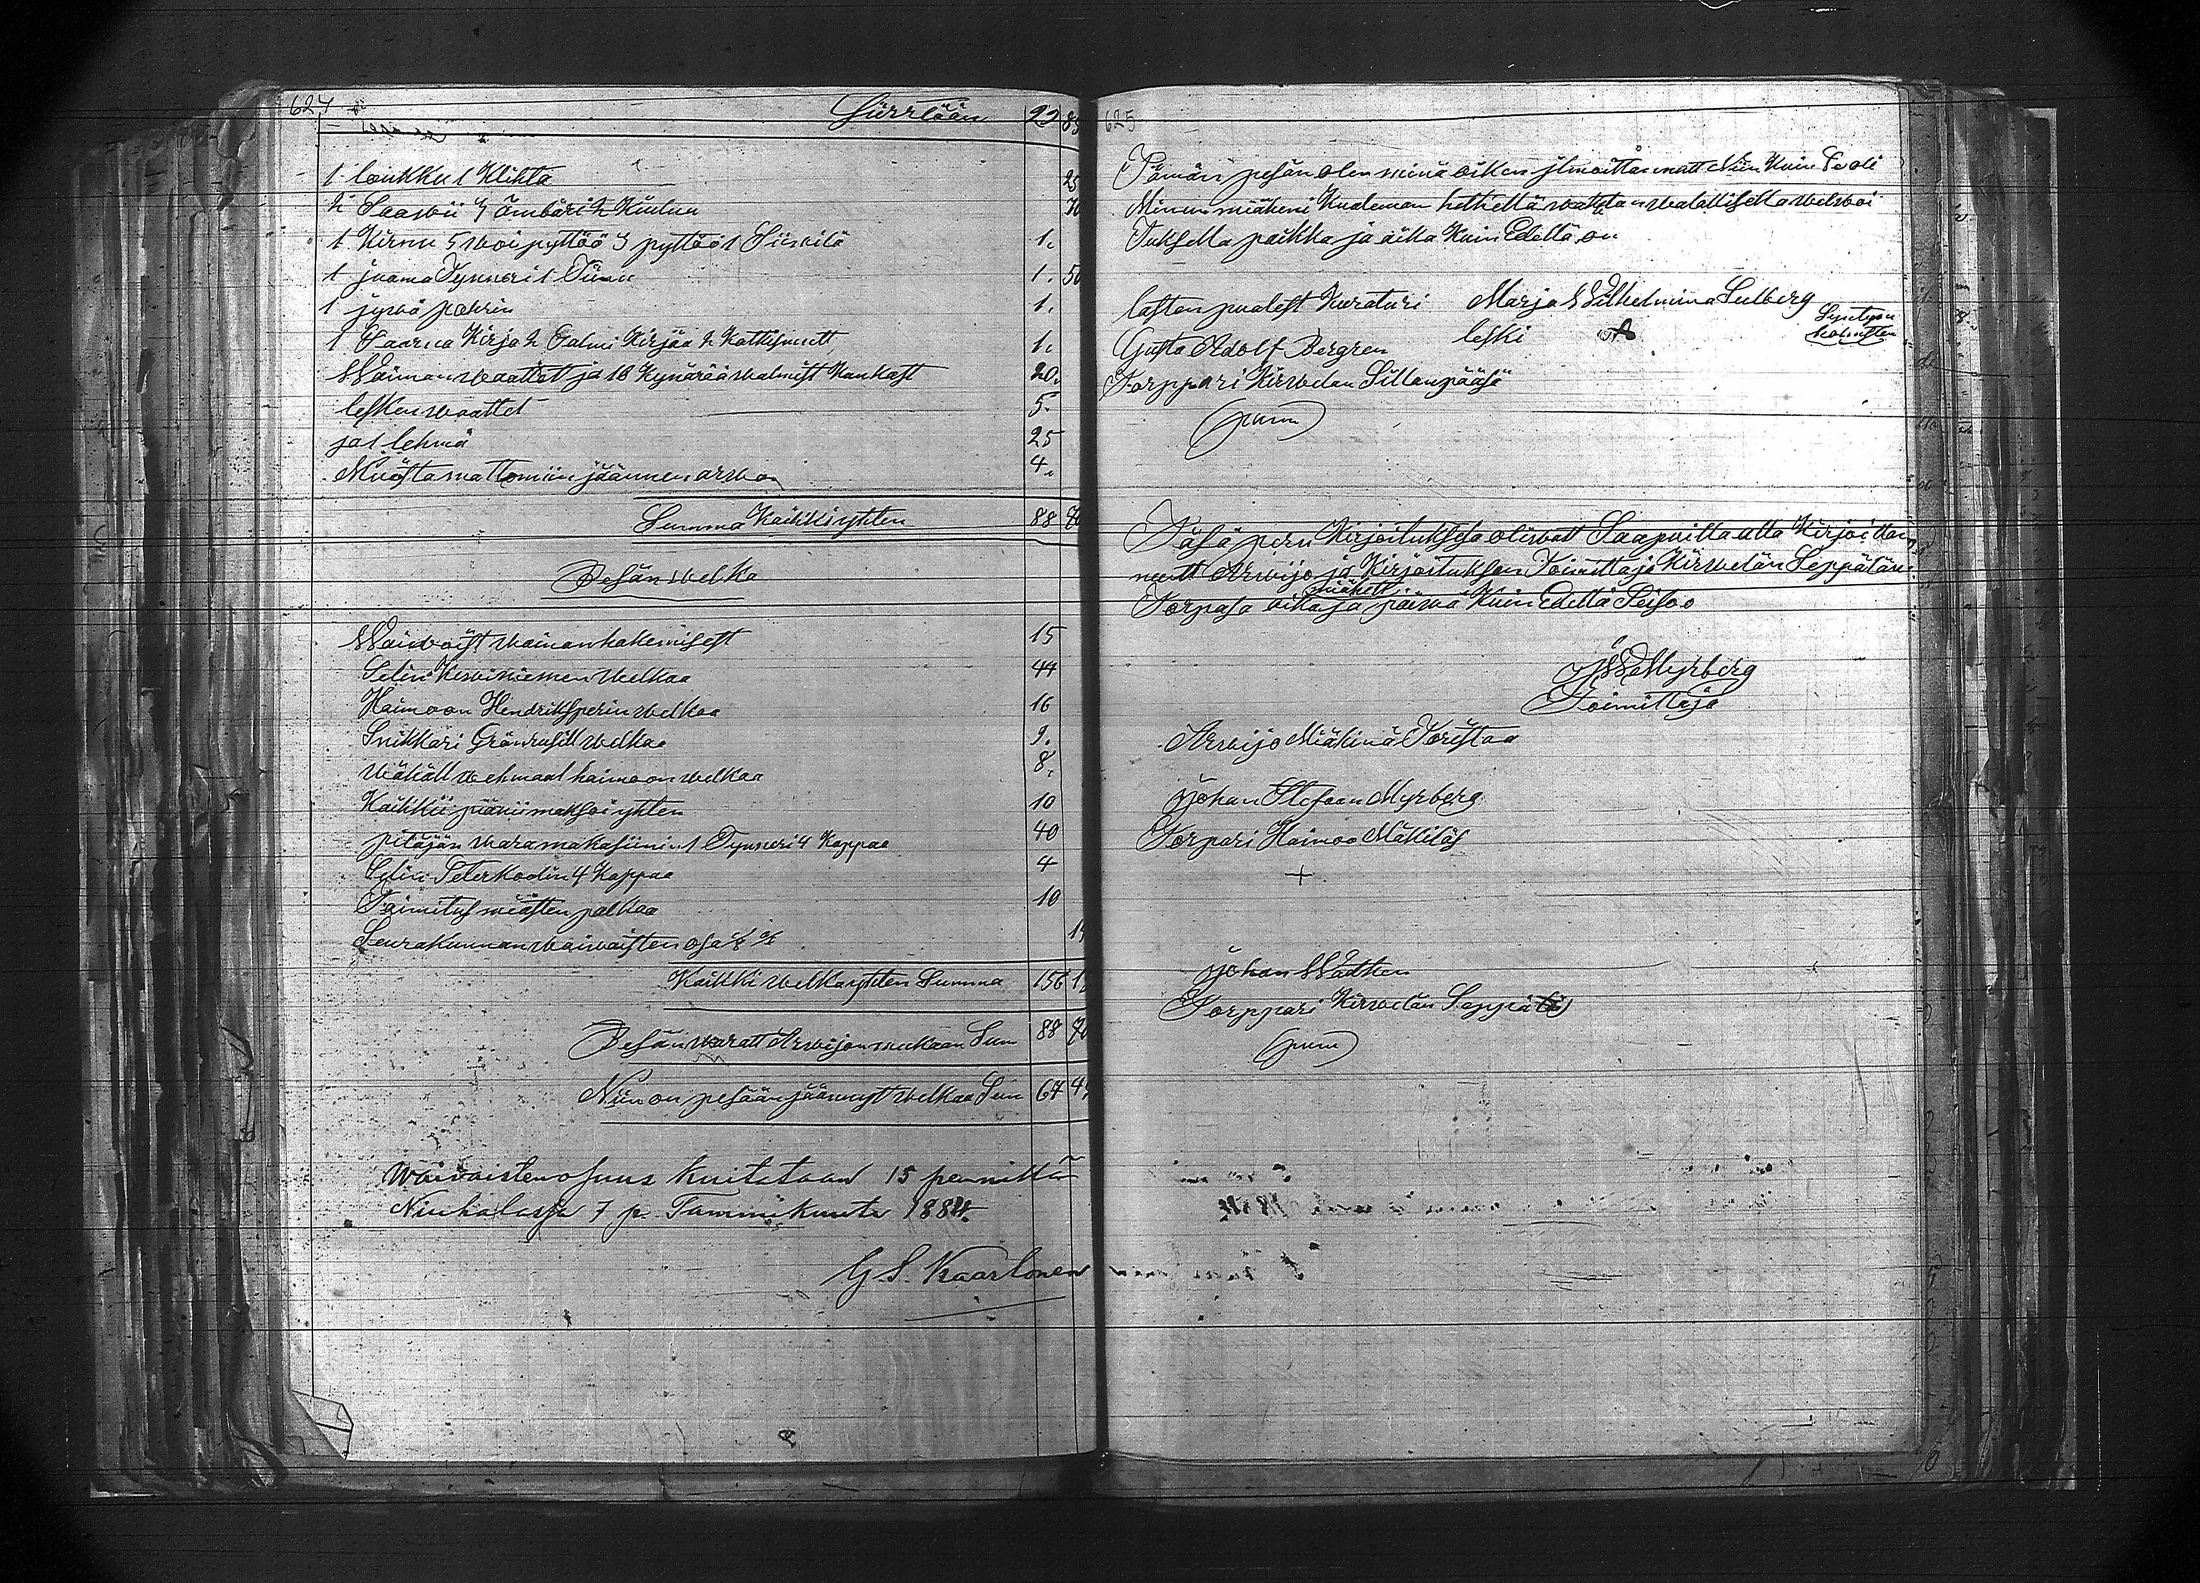 624
Siirrtään 29 85
1 loukku 1 Klihta 25
2 Saawii 4 ämbäri 2 Kiulua 70
1 Kirnu 5 woi pyttöö 3 pyttöö 1 Siivilä 1.
1 juoma Tynneri 1 Tiinu 1. 50
1 jywä purnu 1.
1 Saarna Kirja 2 Salmi Kirjaa 2 Kattismust 1.
Waiman waattet ja 18 Kynärää walmist Kankast 20.
lesken waattet 5.
ja 1 lehmä 25
Muistamattomiin jäännen arwon 4.
Summa Kaikki yhten 88 70
Pesän welka
Waiwaist waiwan hakemisest 15
Selin Keswiniemen welkaa 44
Haimoon Hendrikssperin welkaa 16
Snikkari Grönrusill welkaa 9.
wähäll wehmaal haimoon welkaa 8.
Kaikkii pääni maksoi yhten 10
pitäjän waramakasiinin 1 Tynneri 4 Kappaa 40
Selin Peterkodin 4 Kappaa 4
Toimitus miästen palkaa 10
Seurakunnan waiwaisten osa 1/8 % 1
Kaikki welka yhten Summa 156 1
Pesän waratt Arwijon mukaan Sum 88 70
Niin on pesään jäänyt welkaa Sum 67 4
Waivaisten osuus kuitataan 15 pennillä
Niuhalassa 7 p. Tammikuuta 1884.
G. S. Kaarlonen
625
Tämän pesän olen minä oiken ilmoittannutt Niin Kuin Se oli
Minun miäheni Kualeman hetkellä walalliselle welwoi
Tuksella paikka ja aika Kuin Edellä on
lasten puolest Kuraturi Marja Wilhelmina Sulberg
Gusta Adolf Bergren leski
Torppari Kirwelan Sillanpääsä
puum
Täsä peru Kirjoituksesa oliwatt Saapuilla alla Kirjoitta
neett Arwijo ja Kirjoituksen Toimittaja Kirwelän Seppälän
Torpasa aika ja päiwä Kuin Edellä Seisoo
J W Myrberg
Toimittaja
Arwijo Miäkinä Toristaa
Johan Stefaan Myrberg
Torpari Haimoo Mäkiläs
+
Johan Wadthen
Torppari Kirwelän Seppäläs
puum